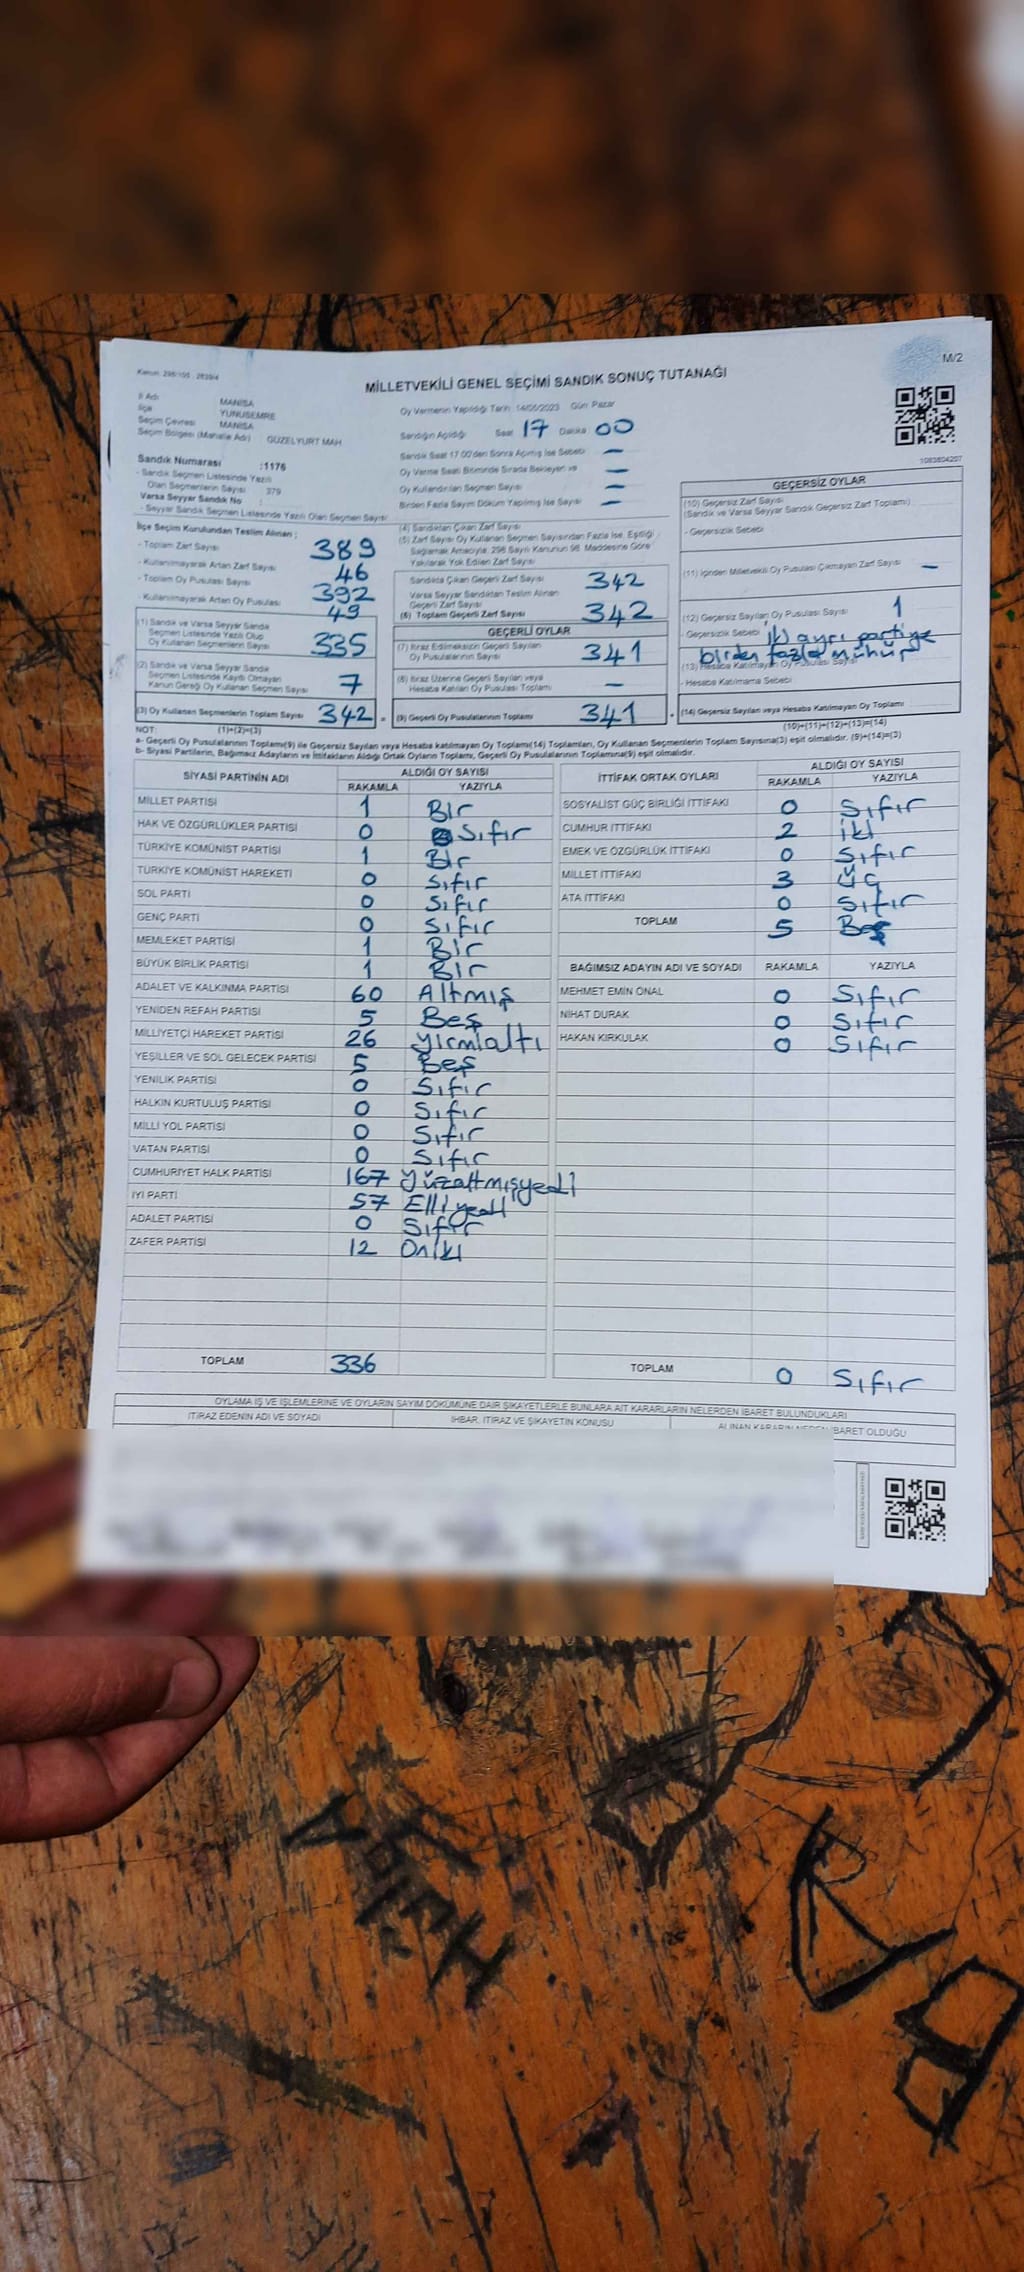 Kanun: 298/105 - 2839/4
M/2
MİLLETVEKİLİ GENEL SEÇİMİ SANDIK SONUÇ TUTANAĞI
İl Adı MANİSA
İlçe YUNUSEMRE
Seçim Çevresi MANİSA
Seçim Bölgesi (Mahalle Adı) GÜZELYURT MAH.
Sandık Numarası :1176
- Sandık Seçmen Listesinde Yazılı
Olan Seçmenlerin Sayısı 379
Varsa Seyyar Sandık No :
- Seyyar Sandık Seçmen Listesinde Yazılı Olan Seçmen Sayısı:
Oy Vermenin Yapıldığı Tarih: 14/05/2023 Gün: Pazar
Sandığın Açıldığı Saat 17 Dakika 00
Sandık Saat 17.00'den Sonra Açılmış İse Sebebi —
Oy Verme Saati Bitiminde Sırada Bekleyen ve —
Oy Kullandırılan Seçmen Sayısı —
Birden Fazla Sayım Döküm Yapılmış İse Sayısı —
1083804207
İlçe Seçim Kurulundan Teslim Alınan ;
- Toplam Zarf Sayısı 389
- Kullanılmayarak Artan Zarf Sayısı 46
- Toplam Oy Pusulası Sayısı 392
- Kullanılmayarak Artan Oy Pusulası 49
(1) Sandık ve Varsa Seyyar Sandık
Seçmen Listesinde Yazılı Olup
Oy Kullanan Seçmenlerin Sayısı 335
(2) Sandık ve Varsa Seyyar Sandık
Seçmen Listesinde Kayıtlı Olmayan
Kanun Gereği Oy Kullanan Seçmen Sayısı 7
(3) Oy Kullanan Seçmenlerin Toplam Sayısı 342 =
(1)+(2)=(3)
(4) Sandıktan Çıkan Zarf Sayısı
(5) Zarf Sayısı Oy Kullanan Seçmen Sayısından Fazla İse, Eşitliği
Sağlamak Amacıyla; 298 Sayılı Kanunun 98. Maddesine Göre
Yakılarak Yok Edilen Zarf Sayısı
Sandıkta Çıkan Geçerli Zarf Sayısı 342
Varsa Seyyar Sandıktan Teslim Alınan
Geçerli Zarf Sayısı
(6) Toplam Geçerli Zarf Sayısı 342
GEÇERLİ OYLAR
(7) İtiraz Edilmeksizin Geçerli Sayılan
Oy Pusulalarının Sayısı 341
(8) İtiraz Üzerine Geçerli Sayılan veya
Hesaba Katılan Oy Pusulası Toplamı —
(9) Geçerli Oy Pusulalarının Toplamı 341 +
GEÇERSİZ OYLAR
(10) Geçersiz Zarf Sayısı
(Sandık ve Varsa Seyyar Sandık Geçersiz Zarf Toplamı)
- Geçersizlik Sebebi
(11) İçinden Milletvekili Oy Pusulası Çıkmayan Zarf Sayısı —
(12) Geçersiz Sayılan Oy Pusulası Sayısı 1
- Geçersizlik Sebebi iki ayrı partiye
birden fazla mühür
(13) Hesaba Katılmayan Oy Pusulası Sayısı
- Hesaba Katılmama Sebebi
(14) Geçersiz Sayılan veya Hesaba Katılmayan Oy Toplamı
(10)+(11)+(12)+(13)=(14)
NOT:
a- Geçerli Oy Pusulalarının Toplamı(9) ile Geçersiz Sayılan veya Hesaba katılmayan Oy Toplamı(14) Toplamları, Oy Kullanan Seçmenlerin Toplam Sayısına(3) eşit olmalıdır. (9)+(14)=(3)
b- Siyasi Partilerin, Bağımsız Adayların ve İttifakların Aldığı Ortak Oyların Toplamı, Geçerli Oy Pusulalarının Toplamına(9) eşit olmalıdır.
SİYASİ PARTİNİN ADI ALDIĞI OY SAYISI
RAKAMLA YAZIYLA
MİLLET PARTİSİ 1 Bir
HAK VE ÖZGÜRLÜKLER PARTİSİ 0 Sıfır
TÜRKİYE KOMÜNİST PARTİSİ 1 Bir
TÜRKİYE KOMÜNİST HAREKETİ 0 Sıfır
SOL PARTİ 0 Sıfır
GENÇ PARTİ 0 Sıfır
MEMLEKET PARTİSİ 1 Bir
BÜYÜK BİRLİK PARTİSİ 1 Bir
ADALET VE KALKINMA PARTİSİ 60 Altmış
YENİDEN REFAH PARTİSİ 5 Beş
MİLLİYETÇİ HAREKET PARTİSİ 26 yirmialtı
YEŞİLLER VE SOL GELECEK PARTİSİ 5 Beş
YENİLİK PARTİSİ 0 Sıfır
HALKIN KURTULUŞ PARTİSİ 0 Sıfır
MİLLİ YOL PARTİSİ 0 Sıfır
VATAN PARTİSİ 0 Sıfır
CUMHURİYET HALK PARTİSİ 167 yüzaltmışyedi
İYİ PARTİ 57 Elliyedi
ADALET PARTİSİ 0 Sıfır
ZAFER PARTİSİ 12 Oniki
TOPLAM 336
İTTİFAK ORTAK OYLARI ALDIĞI OY SAYISI
RAKAMLA YAZIYLA
SOSYALİST GÜÇ BİRLİĞİ İTTİFAKI 0 Sıfır
CUMHUR İTTİFAKI 2 iki
EMEK VE ÖZGÜRLÜK İTTİFAKI 0 Sıfır
MİLLET İTTİFAKI 3 üç
ATA İTTİFAKI 0 Sıfır
TOPLAM 5 Beş
BAĞIMSIZ ADAYIN ADI VE SOYADI RAKAMLA YAZIYLA
MEHMET EMİN ÖNAL 0 Sıfır
NİHAT DURAK 0 Sıfır
HAKAN KIRKULAK 0 Sıfır
TOPLAM 0 Sıfır
OYLAMA İŞ VE İŞLEMLERİNE VE OYLARIN SAYIM DÖKÜMÜNE DAİR ŞİKAYETLERLE BUNLARA AİT KARARLARIN NELERDEN İBARET BULUNDUKLARI
İTİRAZ EDENİN ADI VE SOYADI İHBAR, İTİRAZ VE ŞİKAYETİN KONUSU ALINAN KARARIN NEDEN İBARET OLDUĞU